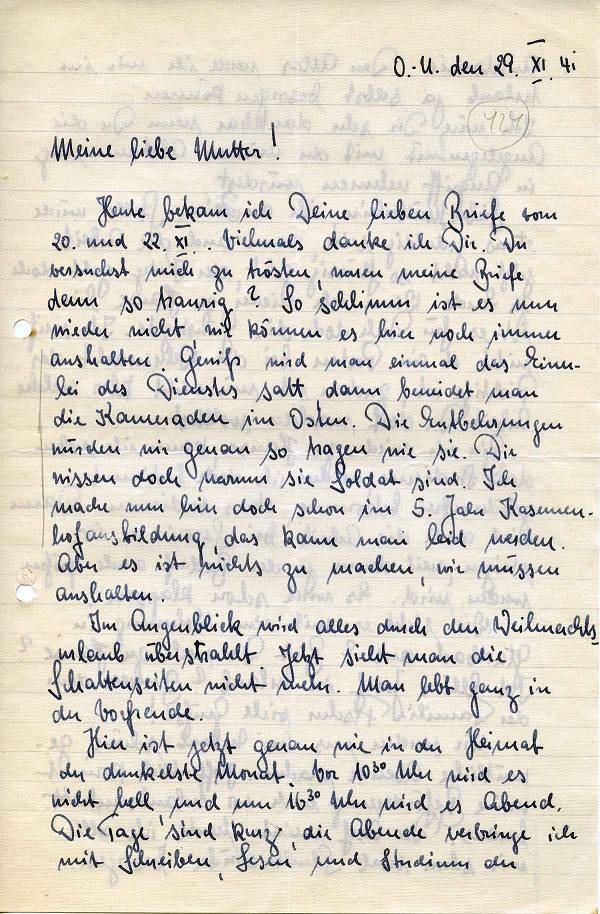 O.-U. den 29. XI. 41
424
Meine liebe Mutter!
Heute bekam ich Deine lieben Briefe vom
20. und 22. XI. . Vielmals danke ich Dir. Du
versuchst mich zu trösten, waren meine Briefe
denn so traurig? So schlimm ist es nun
wieder nicht wir können es hier noch immer
aushalten. Gewiß wird man einmal das Einer-
lei des Dienstes satt, dann beneidet man
die Kameraden im Osten. Die Entbehrungen
würden wir genau so tragen wie sie. Die
wissen doch warum sie Soldat sind. Ich
mache nun hin doch schon im 5. Jahr Kasernen-
hofausbildung, das kann man leid werden.
Aber es ist nichts zu machen, wir müssen
aushalten.
Im Augenblick wird alles durch den Weihnachts-
urlaub überstrahlt. Jetzt sieht man die
Schattenseiten nicht mehr. Man lebt ganz in
der Vorfreude.
Hier ist jetzt genau wie in der Heimat
der dunkelste Monat. Vor 10³⁰ Uhr wird es
nicht hell und um 16³⁰ Uhr wird es Abend.
Die Tage sind kurz, die Abende verbringe ich
mit Schreiben, Lesen und Studium der